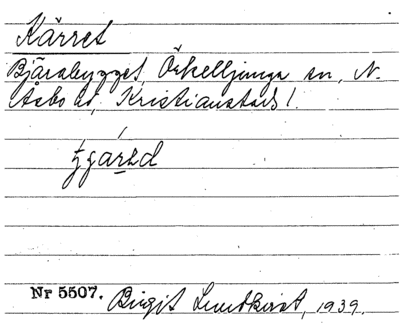 Kärret
Bjärabygget, Örkelljunga sn, N.
Åsbo hd, Kristianstads l.
Nr 5507. Birgit Lundkvist, 1939.